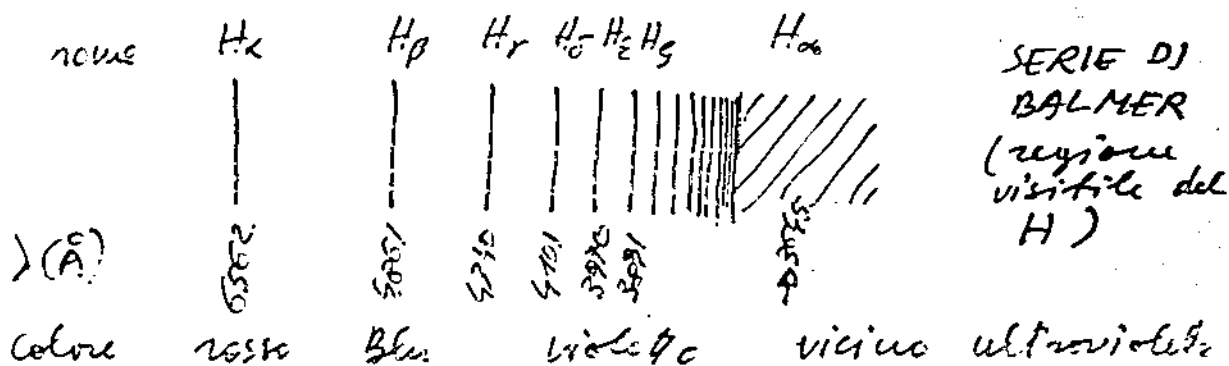 nome Hα Hβ Hγ Hδ Hε Hζ H∞
SERIE DI
BALMER
(regione
visibile del
H)
λ(Å) 6562 4861 4340 4101 3970 3889 3645
colore rosso Blu violetto vicino ultravioletto